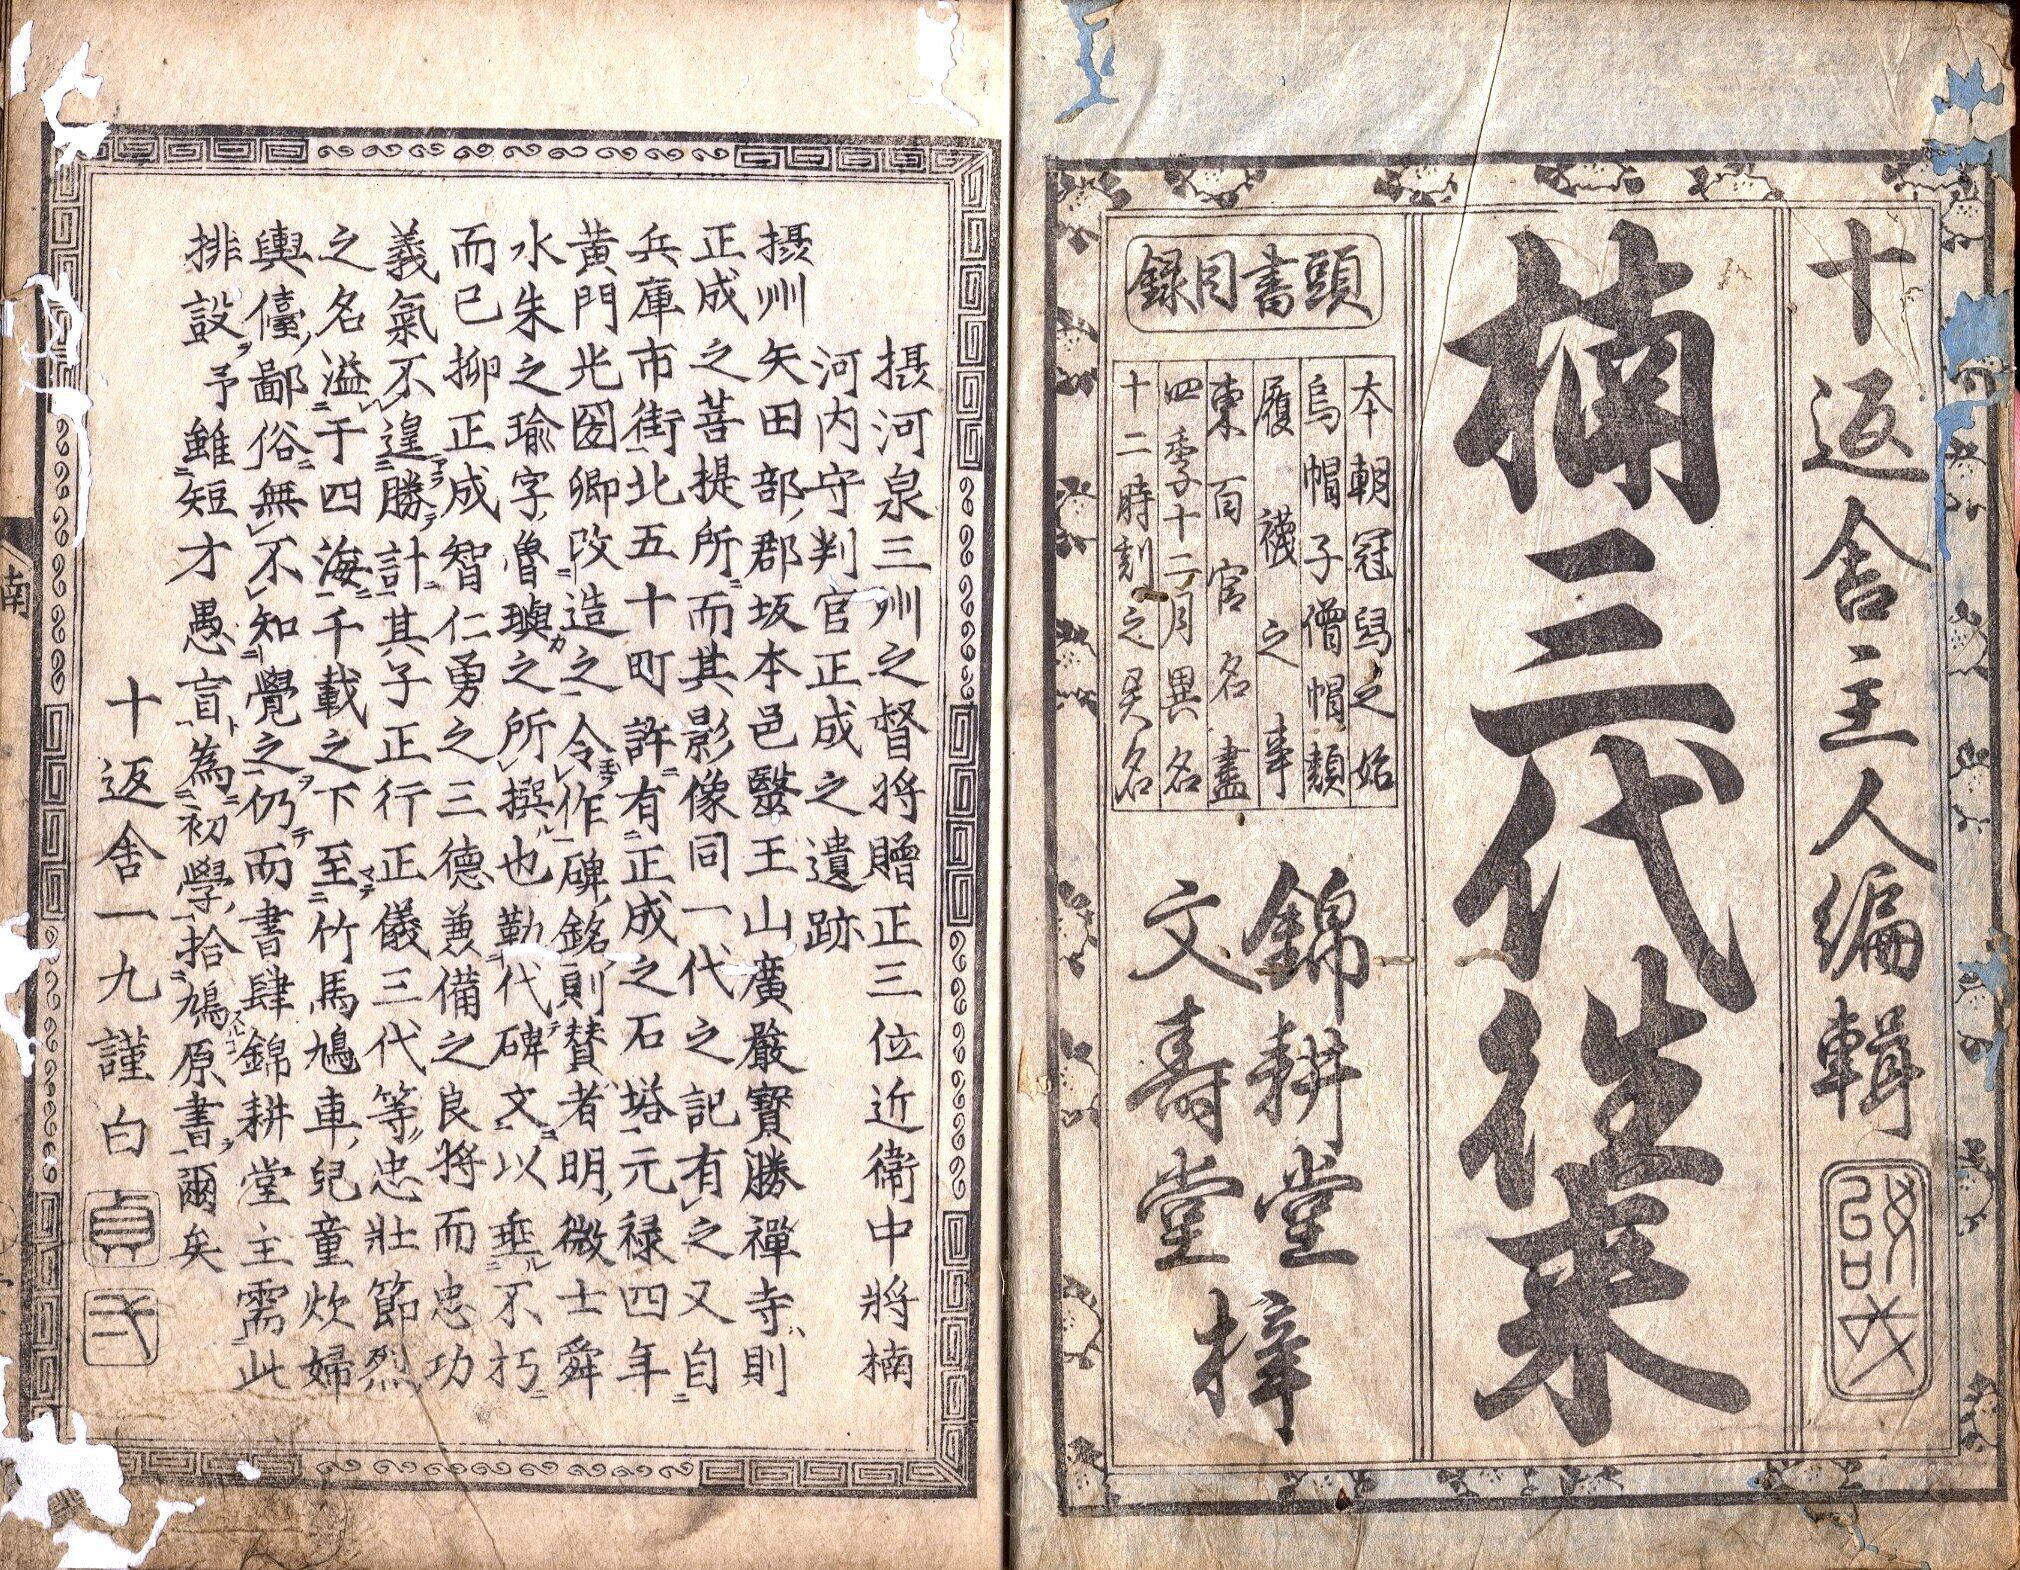 十返舎主人編輯
楠三代往来
頭書目録
本朝冠舄之始
烏帽子僧帽類
履襪之事
東百官名盡
四季十二月異名
十二時刻之異名
錦耕堂
文壽堂
梓
摂河泉三州之督将贈正三位近衞中将楠
河内守判官正成之遺跡
摂州矢田部郡坂本邑醫王山廣嚴寳勝禪寺則
正成之菩提所而其影像同一代之記有之又自
兵庫市街北五十町許有正成之石塔元禄四年
黄門光圀卿改造之令作碑銘則賛者明微士舜
水朱之瑜字魯璵之所撰也勒代碑文以垂不朽
而已抑正成智仁勇之三德兼備之良将而忠功
義氣不遑勝計其子正行正儀三代等忠壯節烈
之名溢于四海千載之下至竹馬鳩車兒童炊婦
輿儓鄙俗無不知覺之仍而書肆錦耕堂主需此
排設予雖短才愚盲為初學拾鳩原書爾矣
十返舎一九謹白
貞一
南